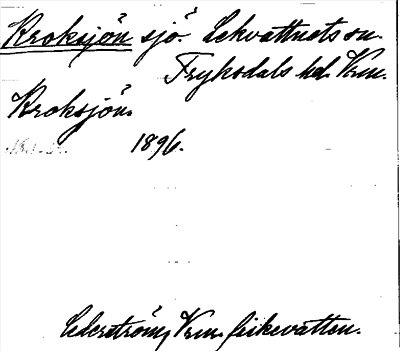 Kroksjön sjö. Lekvattnets sn.
Fryksdals hd. Vrm.
Kroksjön.
1896.
Cederström, Vrm. fiskevatten.